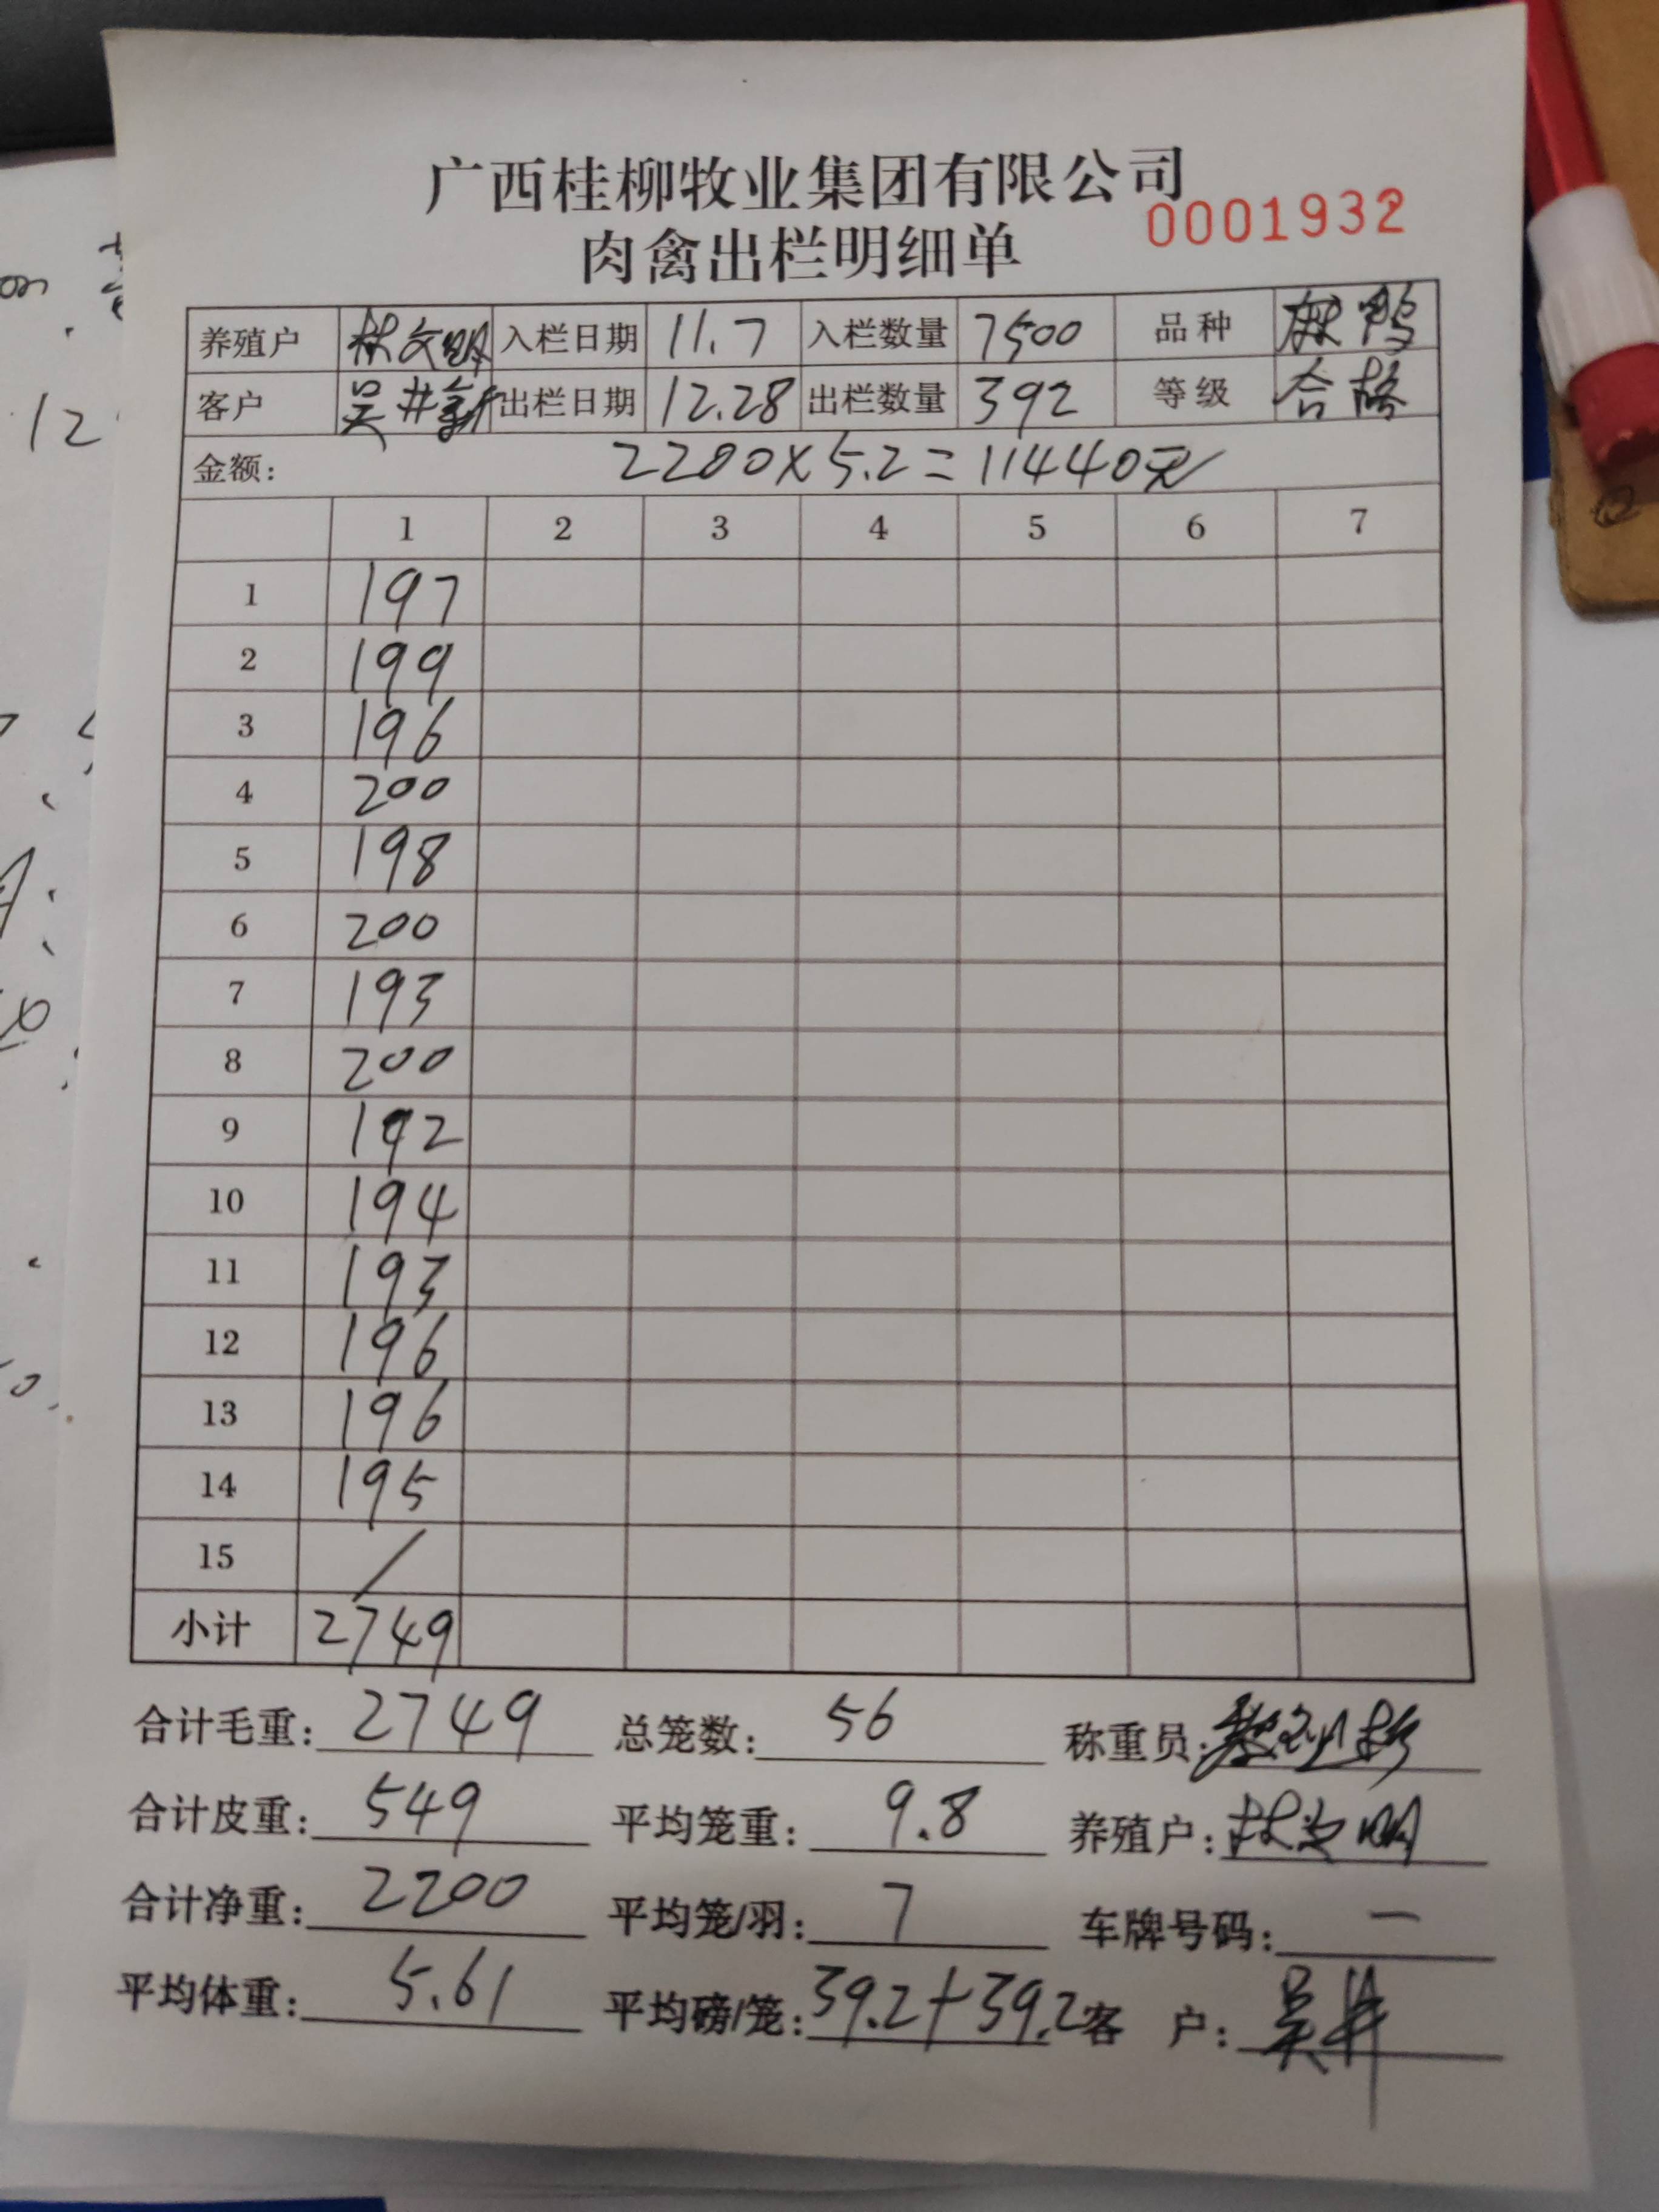 广西桂柳牧业集团有限公司
0001932
肉禽出栏明细单
养殖户 林文明 入栏日期 11.7 入栏数量 7500 品种 鸭
客户 吴井新 出栏日期 12.28 出栏数量 392 等级 合格
金额: 2200×5.2=11440元
1 2 3 4 5 6 7
1 197
2 199
3 196
4 200
5 198
6 200
7 193
8 200
9 192
10 194
11 193
12 196
13 196
14 195
15 /
小计 2749
合计毛重: 2749 总笼数: 56 称重员:
合计皮重: 549 平均笼重: 9.8 养殖户: 林文明
合计净重: 2200 平均笼/羽: 7 车牌号码: 一
平均体重: 5.61 平均磅/笼: 39.2+39.2 客 户: 吴井